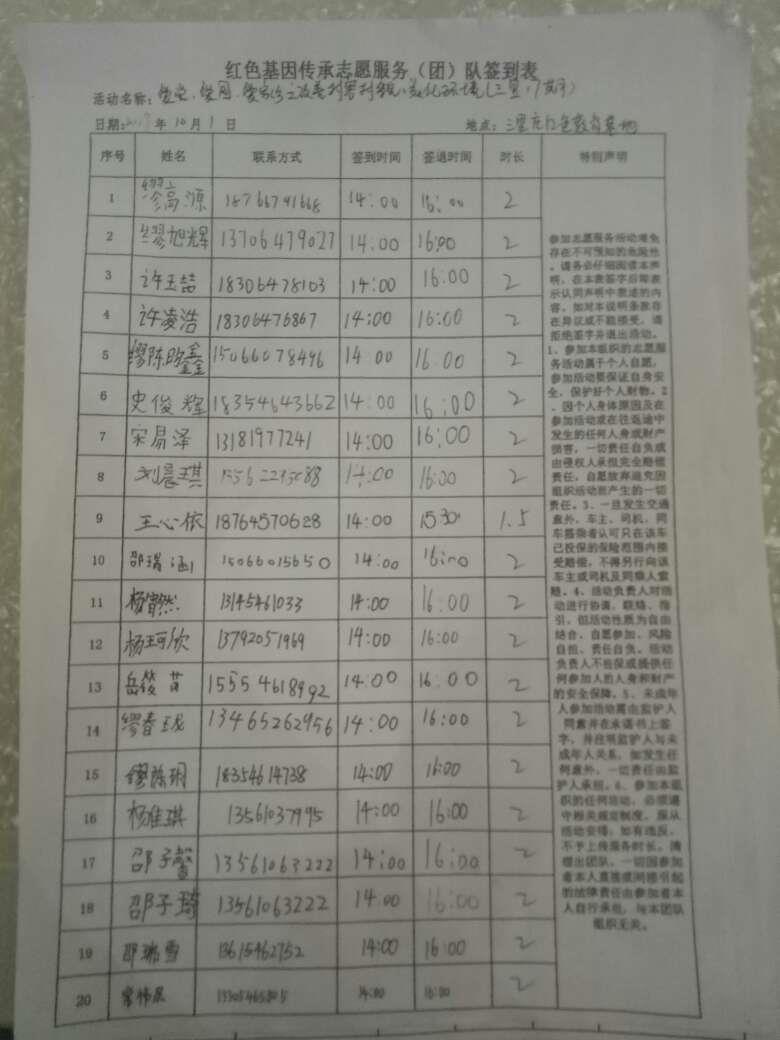 红色基因传承志愿服务（团）队签到表
活动名称：爱党、爱国、爱家
日期： 年 10 月 1 日 地点：三里庄红色教育基地
序号 姓名 联系方式 签到时间 签退时间 时长 特别声明
1 缪高源 18766791668 14:00 16:00 2
2 缪旭辉 13706479027 14:00 16:00 2
3 许玉喆 18306478103 14:00 16:00 2
4 许凌浩 18306476867 14:00 16:00 2
5 缪陈 鑫 15066078496 14:00 16:00 2
6 史俊辉 18354643662 14:00 16:00 2
7 宋易泽 13181977241 14:00 16:00 2
8 刘晨琪 14:00 16:00 2
9 王心依 18764570628 14:00 1530 1.5
10 邵瑞涵 15066015650 14:00 16:00 2
11 杨 然 13145461033 14:00 16:00 2
12 杨珂欣 13792051969 14:00 16:00 2
13 岳筱苗 15554618992 14:00 16:00 2
14 缪春珑 13465262956 14:00 16:00 2
15 缪陈玥 18354614738 14:00 16:00 2
16 杨惟琪 13561037995 14:00 16:00 2
17 邵子馨 13561063222 14:00 16:00 2
18 邵子琦 13561063222 14:00 16:00 2
19 邵瑞雪 13615462752 14:00 16:00 2
20 常伟 14:00 16:00 2
参加志愿服务活动难免
存在不可预知的危险性
，请务必仔细阅读本声
明，在本表签字后即表
示认同声明中表述的内
容，如对本说明条款存
在异议或不能接受，请
拒绝签字并退出活动。
1、参加本组织的志愿服
务活动属于个人自愿，
参加活动要保证自身安
全、保护好个人财物。2
、因个人身体原因及在
参加活动或在往返途中
发生的任何人身或财产
损害，一切责任自负或
由侵权人承担完全赔偿
责任，自愿放弃追究因
组织活动而产生的一切
责任。3、一旦发生交通
意外，车主、司机、同
车搭乘者认可只在该车
已投保的保险范围内接
受赔偿，不得另行向该
车主或司机及同乘人索
赔。4、活动负责人对活
动进行协调、联络、指
引，但活动性质为自由
结合、自愿参加、风险
自担、责任自负。活动
负责人不担保或提供任
何参加人的人身和财产
的安全保障。5、未成年
人参加活动需由监护人
同意并在承诺书上签
字，并注明监护人与未
成年人关系，如发生任
何意外，一切责任由监
护人承担。6、参加本组
织的任何活动，必须遵
守相关规定制度，服从
活动安排，如有违反，
不予上传服务时长，清
理出团队，一切因参加
者本人直接或间接引起
的法律责任由参加者本
人自行承担，与本团队
组织无关。